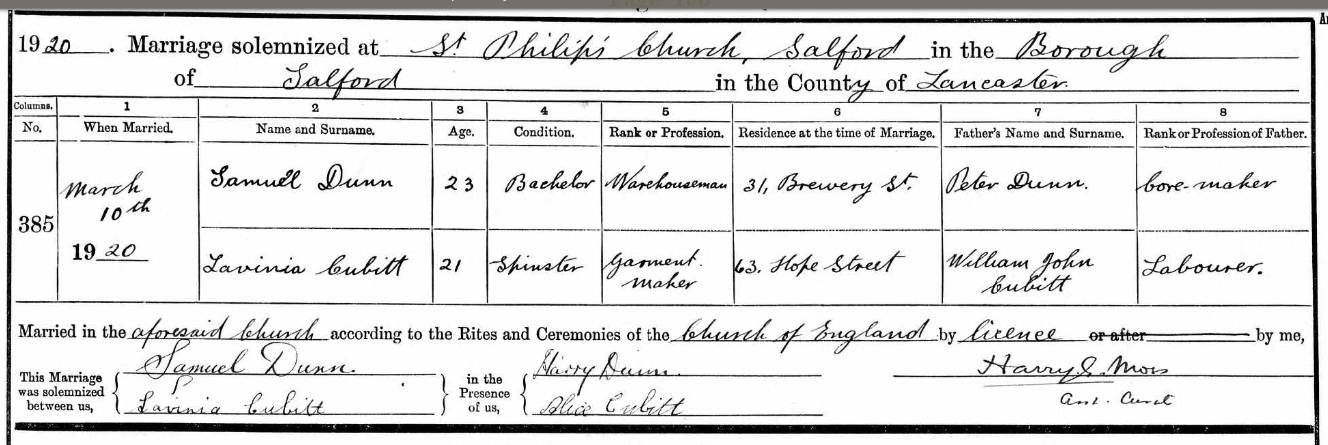 1920. Marriage solemnized at St Philip's Church, Salford in the Borough
of Salford in the County of Lancaster.
Columns. 1 2 3 4 5 6 7 8
No. When Married. Name and Surname. Age. Condition. Rank or Profession. Residence at the time of Marriage. Father's Name and Surname. Rank or Profession of Father.
385 March 10th 1920
Samuel Dunn 23 Bachelor Warehouseman 31, Brewery St. Peter Dunn. -maker
Lavinia Cubitt 21 Spinster Garment maker 63, Hope Street William John Cubitt Labourer.
Married in the aforesaid Church according to the Rites and Ceremonies of the Church of England by licence or after by me,
This Marriage was solemnized between us, Samuel Dunn. Lavinia Cubitt in the Presence of us, Harry Dunn. Alice Cubitt Harry